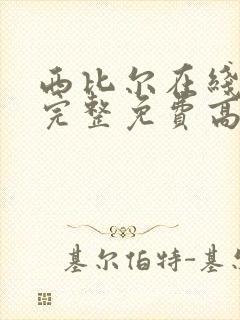 西比尔在线
完整免费高
基尔伯特-基尔